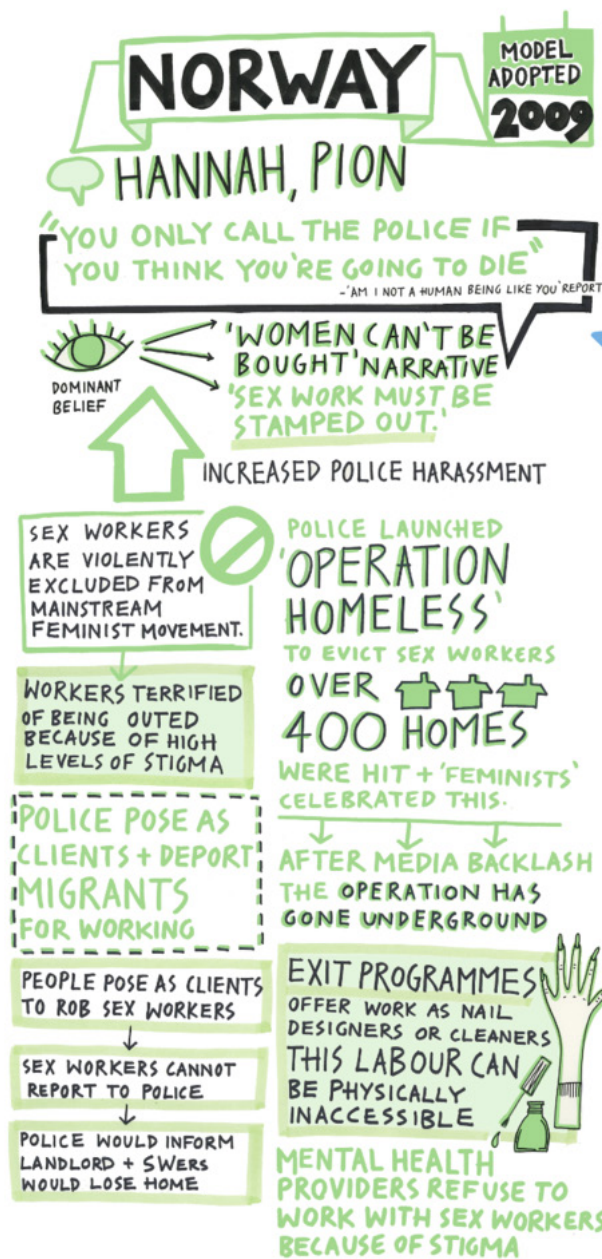 NORWAY
MODEL
ADOPTED
2009
HANNAH, PION
"YOU ONLY CALL THE POLICE IF
YOU THINK YOU'RE GOING TO DIE"
-'AM I NOT A HUMAN BEING LIKE YOU' REPORT
DOMINANT
BELIEF
'WOMEN CAN'T BE
BOUGHT' NARRATIVE
'SEX WORK MUST BE
STAMPED OUT.'
INCREASED POLICE HARASSMENT
SEX WORKERS
ARE VIOLENTLY
EXCLUDED FROM
MAINSTREAM
FEMINIST MOVEMENT.
WORKERS TERRIFIED
OF BEING OUTED
BECAUSE OF HIGH
LEVELS OF STIGMA
POLICE POSE AS
CLIENTS + DEPORT
MIGRANTS
FOR WORKING
PEOPLE POSE AS CLIENTS
TO ROB SEX WORKERS
SEX WORKERS CANNOT
REPORT TO POLICE
POLICE WOULD INFORM
LANDLORD + SWERS
WOULD LOSE HOME
POLICE LAUNCHED
'OPERATION
HOMELESS'
TO EVICT SEX WORKERS
OVER
400 HOMES
WERE HIT + 'FEMINISTS'
CELEBRATED THIS.
AFTER MEDIA BACKLASH
THE OPERATION HAS
GONE UNDERGROUND
EXIT PROGRAMMES
OFFER WORK AS NAIL
DESIGNERS OR CLEANERS
THIS LABOUR CAN
BE PHYSICALLY
INACCESSIBLE
MENTAL HEALTH
PROVIDERS REFUSE TO
WORK WITH SEX WORKERS
BECAUSE OF STIGMA